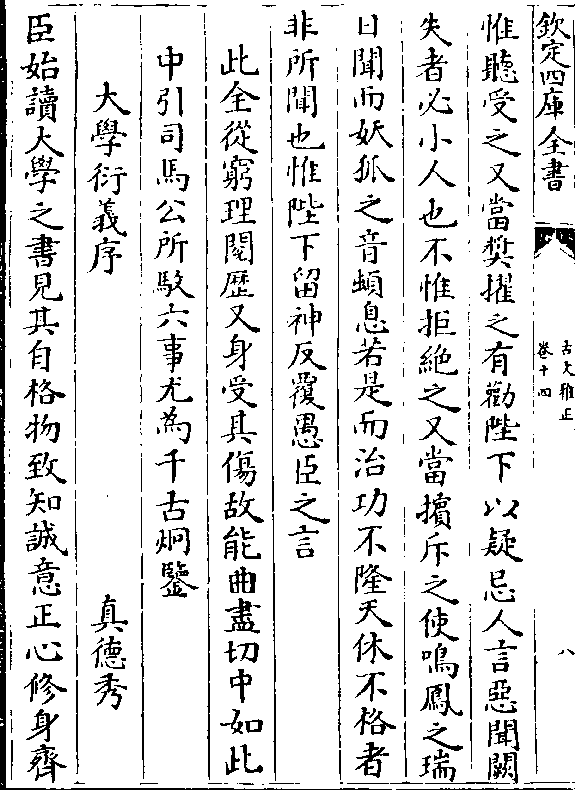 欽定四庫全書
古文雅正
卷十四
八
惟聽受之又當奬擢之有勸陛下以疑忌人言惡聞闕
失者必小人也不惟拒絶之又當擯斥之使鳴鳳之瑞
日聞而妖狐之音頓息若是而治功不隆天休不格者
非所聞也惟陛下留神反覆愚臣之言
此全從窮理閱歴又身受其傷故能曲盡切中如此
中引司馬公所駮六事尤為千古炯鑒
大學衍義序
真德秀
臣始讀大學之書見其自格物致知誠意正心修身齊